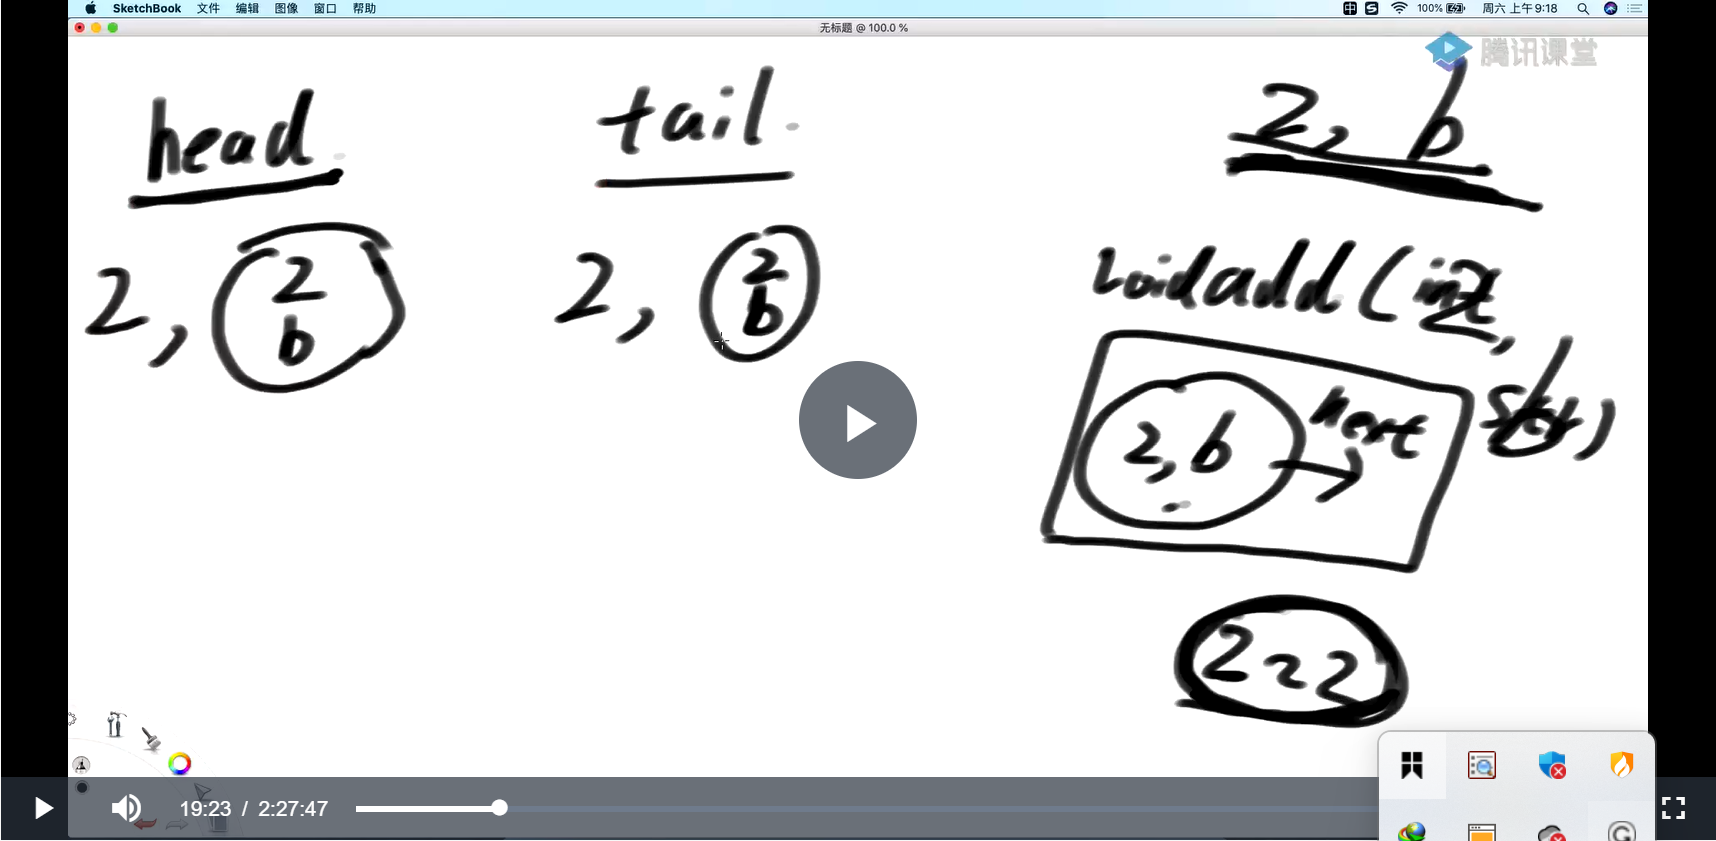 SketchBook 文件 编辑 图像 窗口 帮助 中 S 100% 周六 上午9:18
无标题 @ 100.0 %
腾讯课堂
head
tail
2, b
2, 2 b
2, 2 b
void add (int,
2, b next
19:23 / 2:27:47